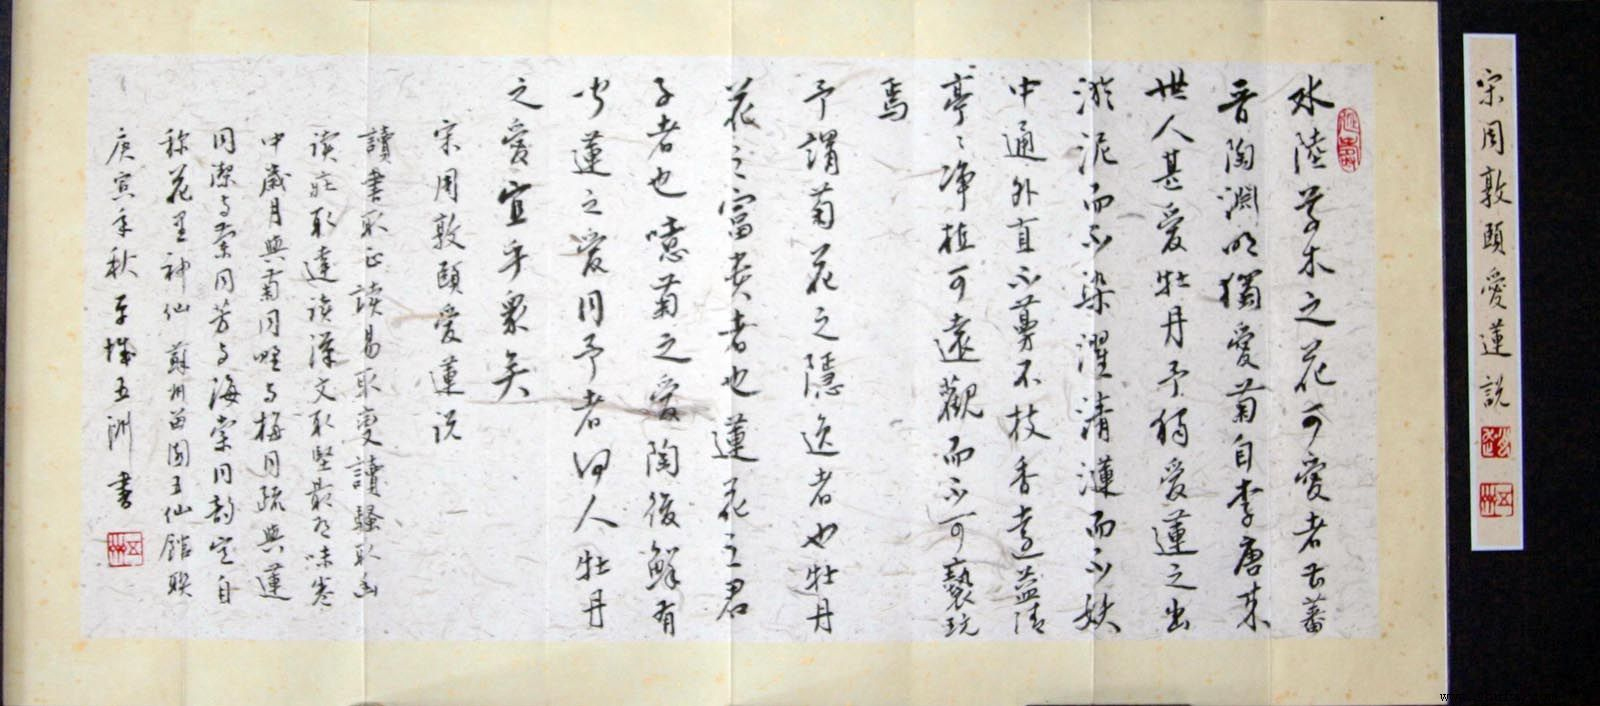 宋周敦頤愛蓮説
水陸草木之花可愛者甚蕃
晋陶淵明獨愛菊自李唐来
世人甚愛牡丹予獨愛蓮之出
淤泥而不染濯清漣而不妖
中通外直不蔓不枝香遠益清
亭〻净植可遠觀而不可褻玩
焉
予謂菊花之隱逸者也牡丹
花之富貴者也蓮花之君
子者也噫菊之愛陶後鮮有
聞蓮之愛同予者何人牡丹
之愛宜乎衆矣
宋周敦頤愛蓮说
讀書取正读易取變讀騷取幽
读莊取達读漢文取堅最有味卷
中歲月與菊同野与梅同疏與蓮
同潔与蘭同芳与海棠同韵定自
称花里神仙 蘇州留園五仙館联
庚寅年秋 五洲書
五洲